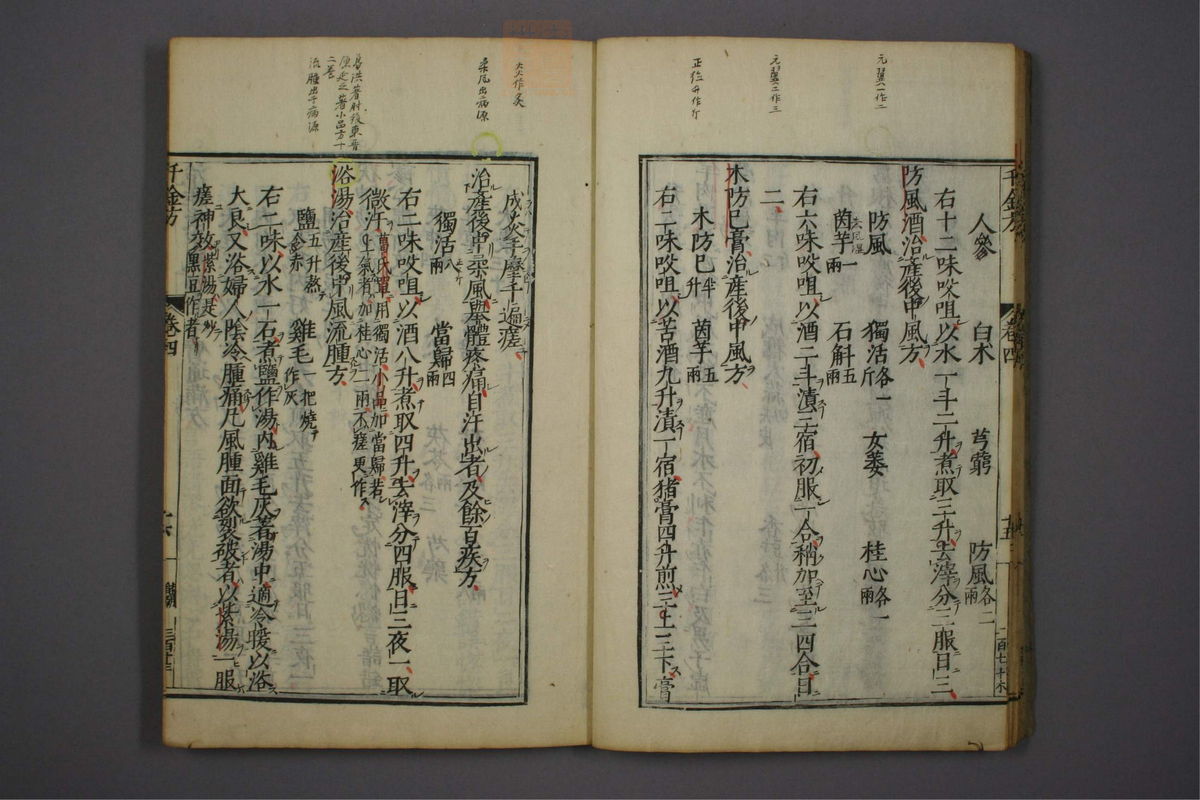 元翼一作二
元翼二作三
正作升作斤
人參 白朮 芎藭 防風各二兩
右十二味㕮咀以水一斗二升煮取三升去滓分三服日三
防風酒治產後中風方
防風 獨活各一斤 女萎 桂心各二兩
茵芋一兩 石斛五兩
右六味㕮咀以酒二斗漬三宿初服一合稍加至三四合日
三
木防己膏治產後中風方
木防己半升 茵芋五兩
右二味㕮咀以苦酒九升漬一宿猪膏四升煎三上三下膏
千金方 卷四 十五
炎作炙
柔風出病源
葛洪著肘後東晉
陳延之著小品方十
二卷
流腫出于病源
成炎手摩千遍瘥
治產後中柔風舉體疼痛自汗出者及餘百疾方
獨活八兩 當歸四兩
右二味㕮咀以酒八升煮取四升去滓分四服日三夜一取
微汗葛氏單用獨活小品加當歸若上氣者加桂心二兩不瘥更作
浴湯治產後中風流腫方
鹽五升熬令赤 雞毛一把燒作灰
右二味以水一石煮鹽作湯內雞毛灰著湯中適冷暖以浴
大良又浴婦人陰冷腫痛凡風腫面欲裂破者以紫湯一服
瘥神效紫湯是炒黑豆作者
千金方 卷四 十六